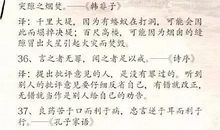 突隙之烟焚。——《韩非子》
译：千里大堤，因为有蝼蚁在打洞，可能会因
此而塌掉决堤；百尺高楼，可能因为烟囱的缝
隙冒出火星引起火灾而焚毁。
36、言之者无罪，闻之者足以戒。——《诗序》
译：提出批评意见的人，是没有罪过的。听到
别人的批评意见要仔细反省自己，有错就改正，
无错就当作是别人给自己的劝告。
37、良药苦于口而利于病，忠言逆于耳而利于
行。——《孔子家语》